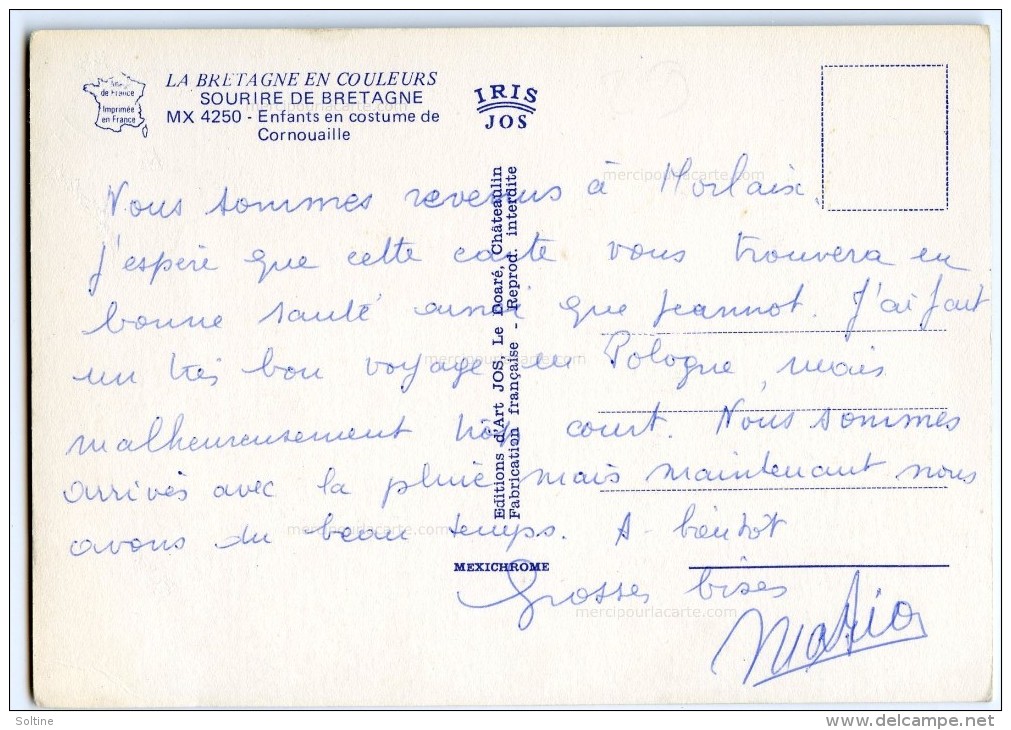 Sites
de France
Imprimée
en France
LA BRETAGNE EN COULEURS
SOURIRE DE BRETAGNE
MX 4250 - Enfants en costume de
Cornouaille
IRIS
JOS
Nous sommes revenus à Morlaix.
J'espère que cette carte vous trouvera en
bonne santé ainsi que Jeannot. J'ai fait
un très bon voyage en Pologne, mais
malheureusement trop court. Nous sommes
arrivés avec la pluie mais maintenant nous
avons du beau temps. A - bientôt
Grosses bises
Maria
Editions d'Art JOS, Le Doaré, Châteaulin
Fabrication française - Reprod. interdite
MEXICHROME
mercipourlacarte.com
mercipourlacarte.com
mercipourlacarte.com
mercipourlacarte.com
mercipourlacarte.com
Soltine
www.delcampe.net